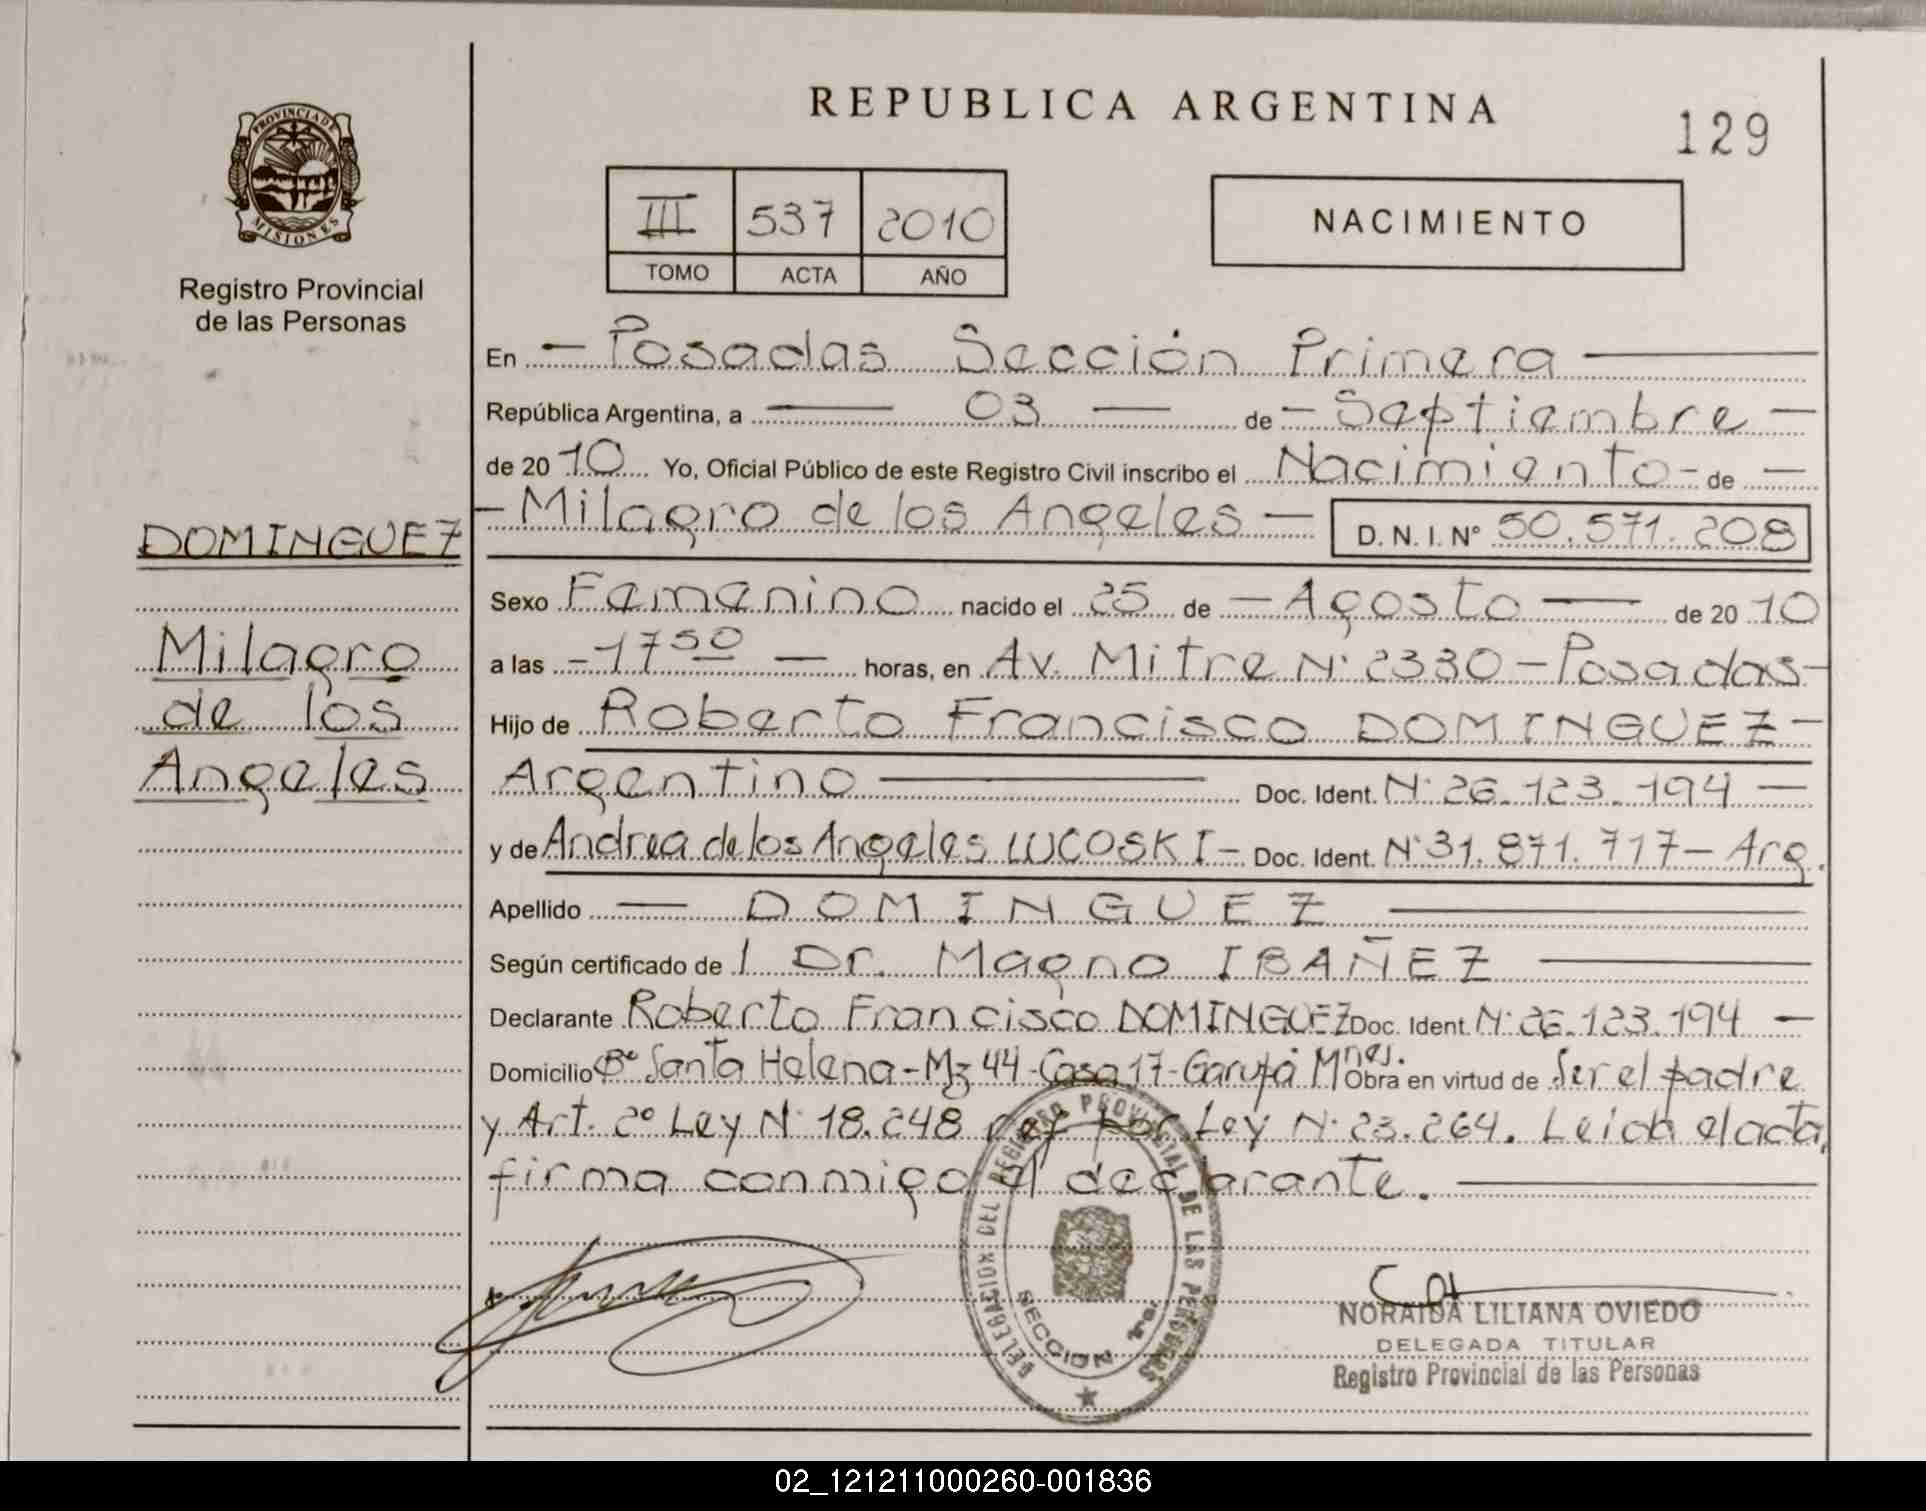 REPUBLICA ARGENTINA
129
PROVINCIA DE
MISIONES
Registro Provincial
de las Personas
III 537 2010
TOMO ACTA AÑO
NACIMIENTO
En - Posadas Sección Primera
República Argentina, a 03 de - Septiembre -
de 2010 Yo, Oficial Público de este Registro Civil inscribo el Nacimiento - de -
- Milagro de los Angeles - D. N. I. Nº 50.571.208
DOMINGUEZ
Milagro
de los
Angeles
Sexo Femenino nacido el 25 de - Agosto - de 2010
a las - 17 50 - horas, en Av. Mitre Nº 2330 - Posadas -
Hijo de Roberto Francisco DOMINGUEZ -
Argentino Doc. Ident. Nº 26.123.194 -
y de Andrea de los Angeles LUCOSKI - Doc. Ident. Nº 31.871.717 - Arg.
Apellido - DOMINGUEZ
Según certificado de l Dr. Magno IBAÑEZ
Declarante Roberto Francisco DOMINGUEZ Doc. Ident. Nº 26.123.194 -
Domicilio Bº Santa Helena - Mz 44 - Casa 17 - Garupá Mnes. Obra en virtud de Ser el padre
y Art. 2º Ley Nº 18.248 ref por Ley Nº 23.264. Leida el acta,
firma conmigo el declarante.
DELEGACION DEL REGISTRO PROVINCIAL DE LAS PERSONAS
SECCION 1ra.
NORAIDA LILIANA OVIEDO
DELEGADA TITULAR
Registro Provincial de las Personas
02_121211000260-001836